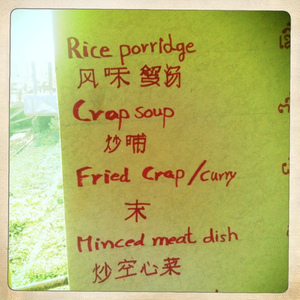 Rice porridge
风味蟹汤
Crap soup
炒晡
Fried Crap/Curry
末
Minced meat dish
炒空心菜